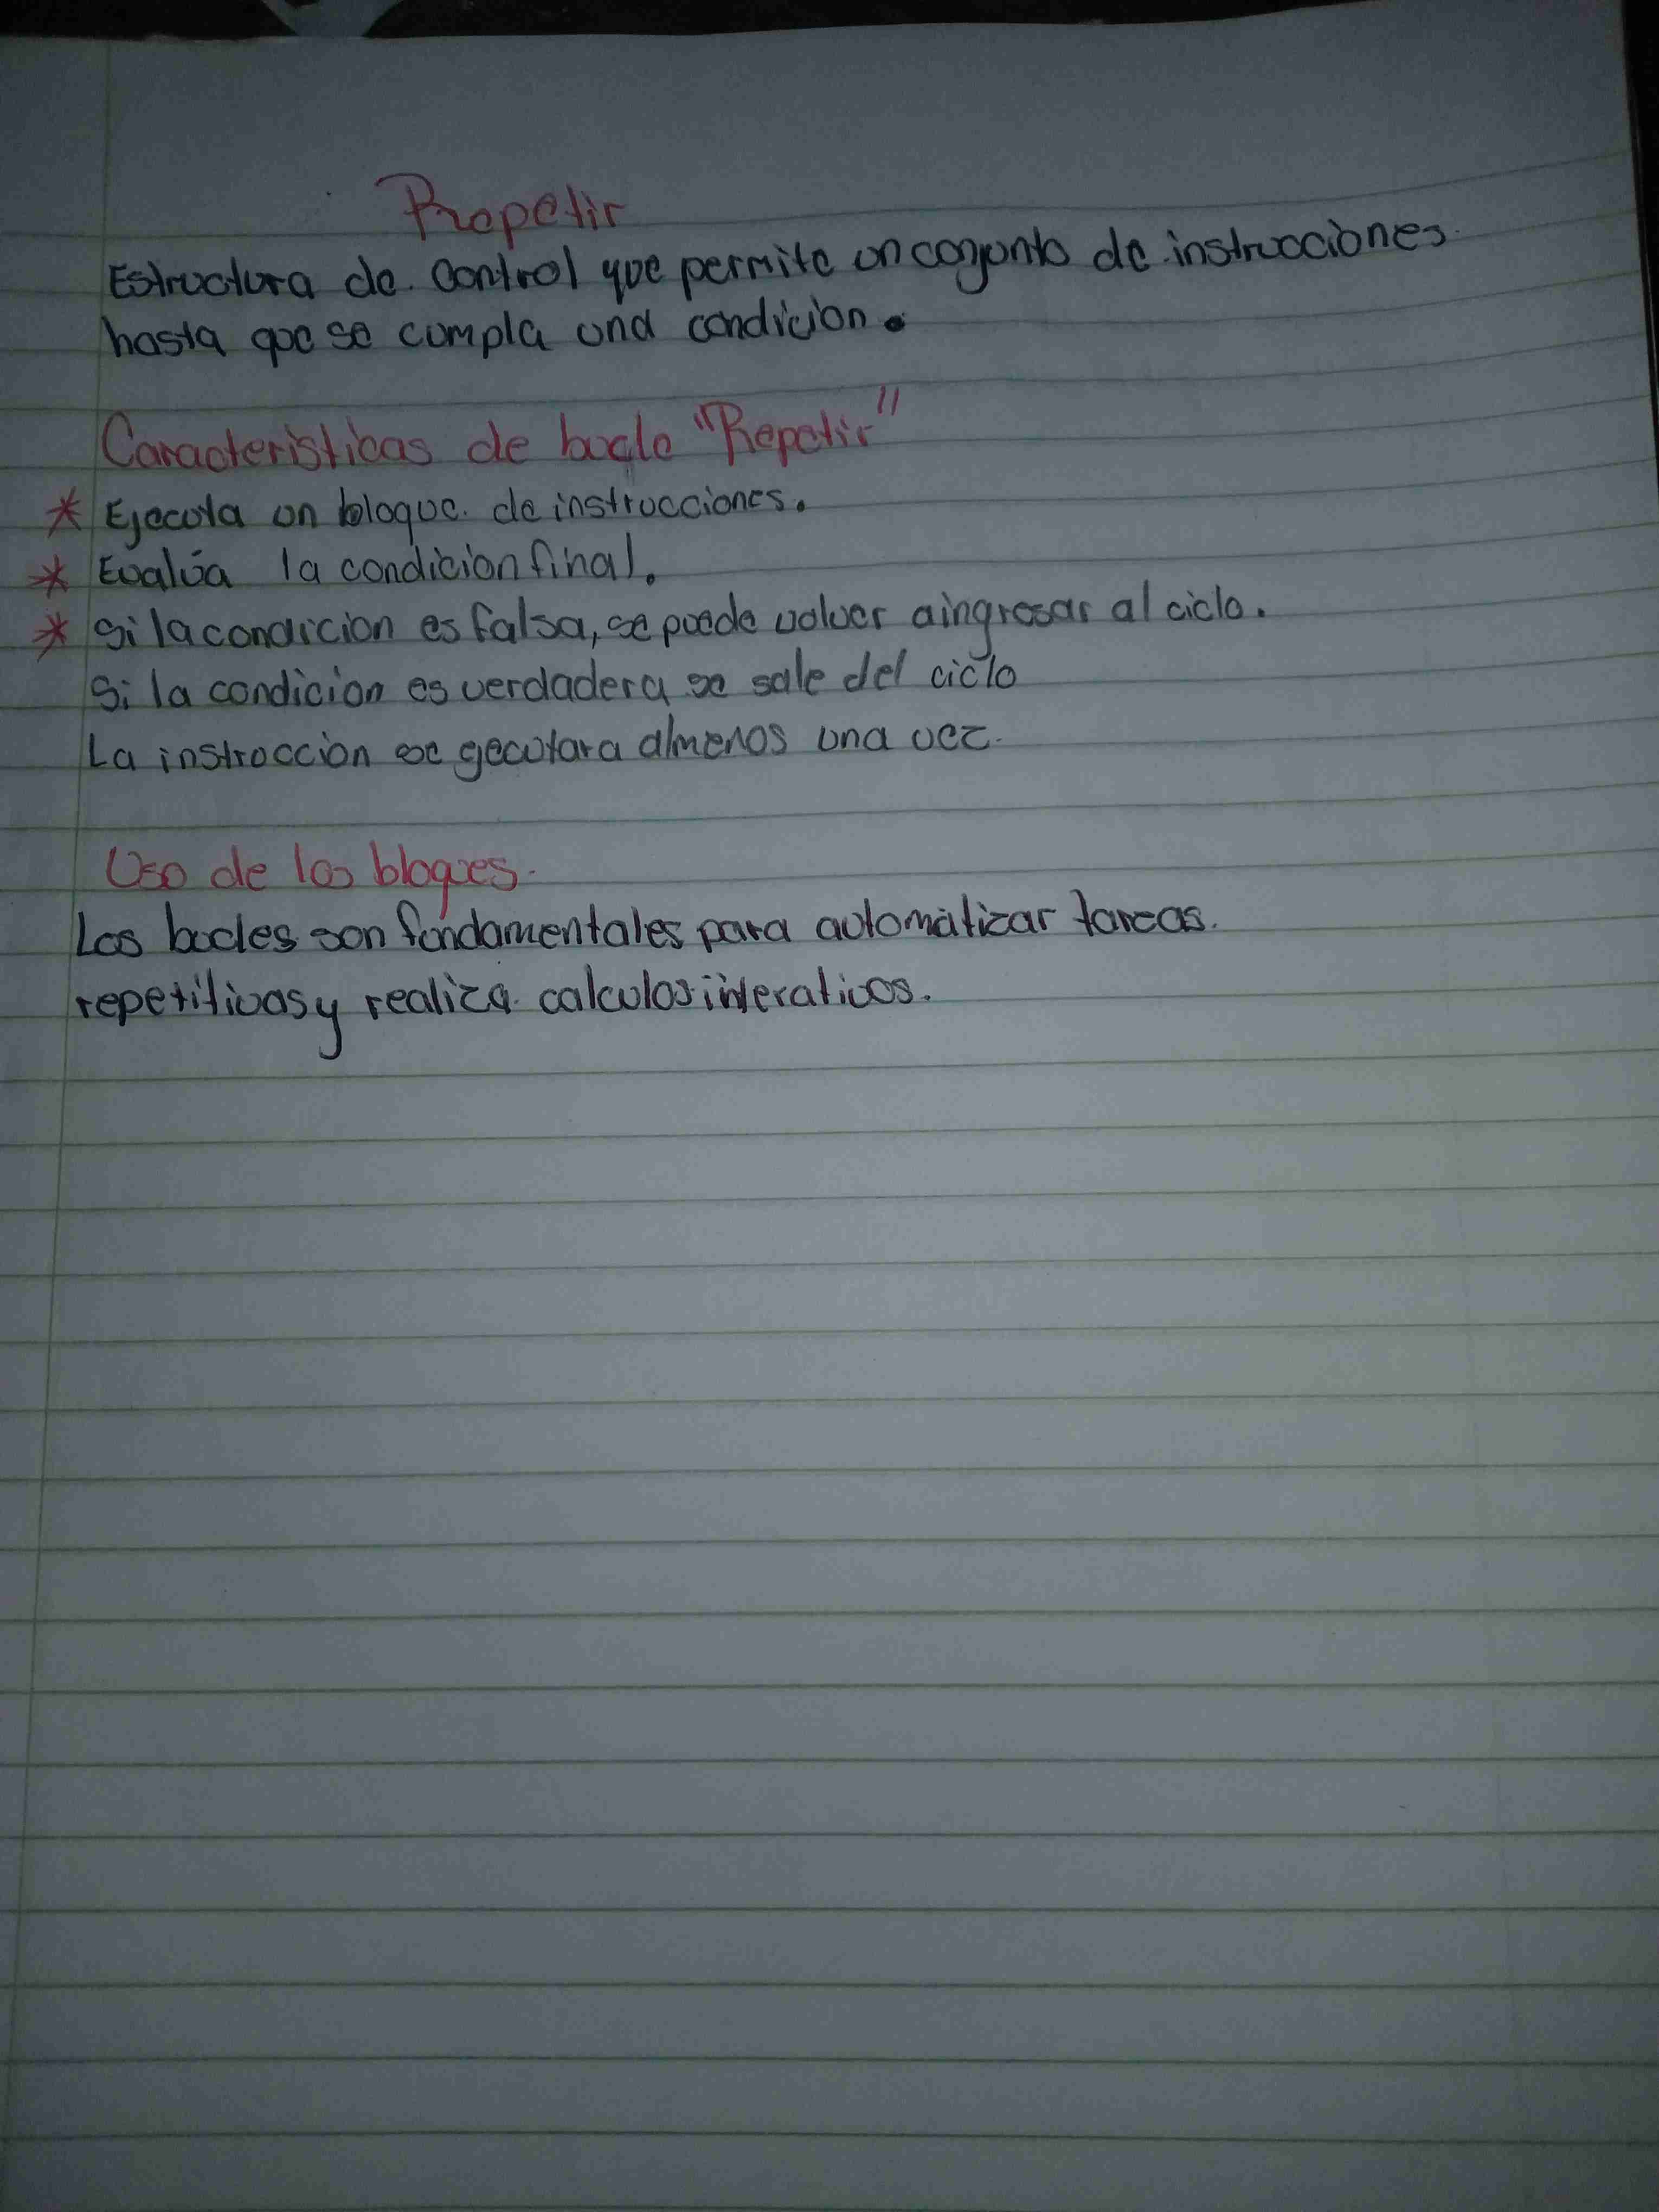 Repetir
Estructura de control que permite un conjunto de instrucciones
hasta que se cumpla una condicion.
Caracteristicas de bucle "Repetir"
* Ejecuta un bloque de instrucciones.
* Evalúa la condicion final.
* Si la condicion es falsa, se puede volver a ingresar al ciclo.
Si la condicion es verdadera se sale del ciclo
La instruccion se ejecutara almenos una vez.
Uso de los bloques.
Los bucles son fundamentales para automatizar tareas.
repetitivas y realiza calculos interativos.